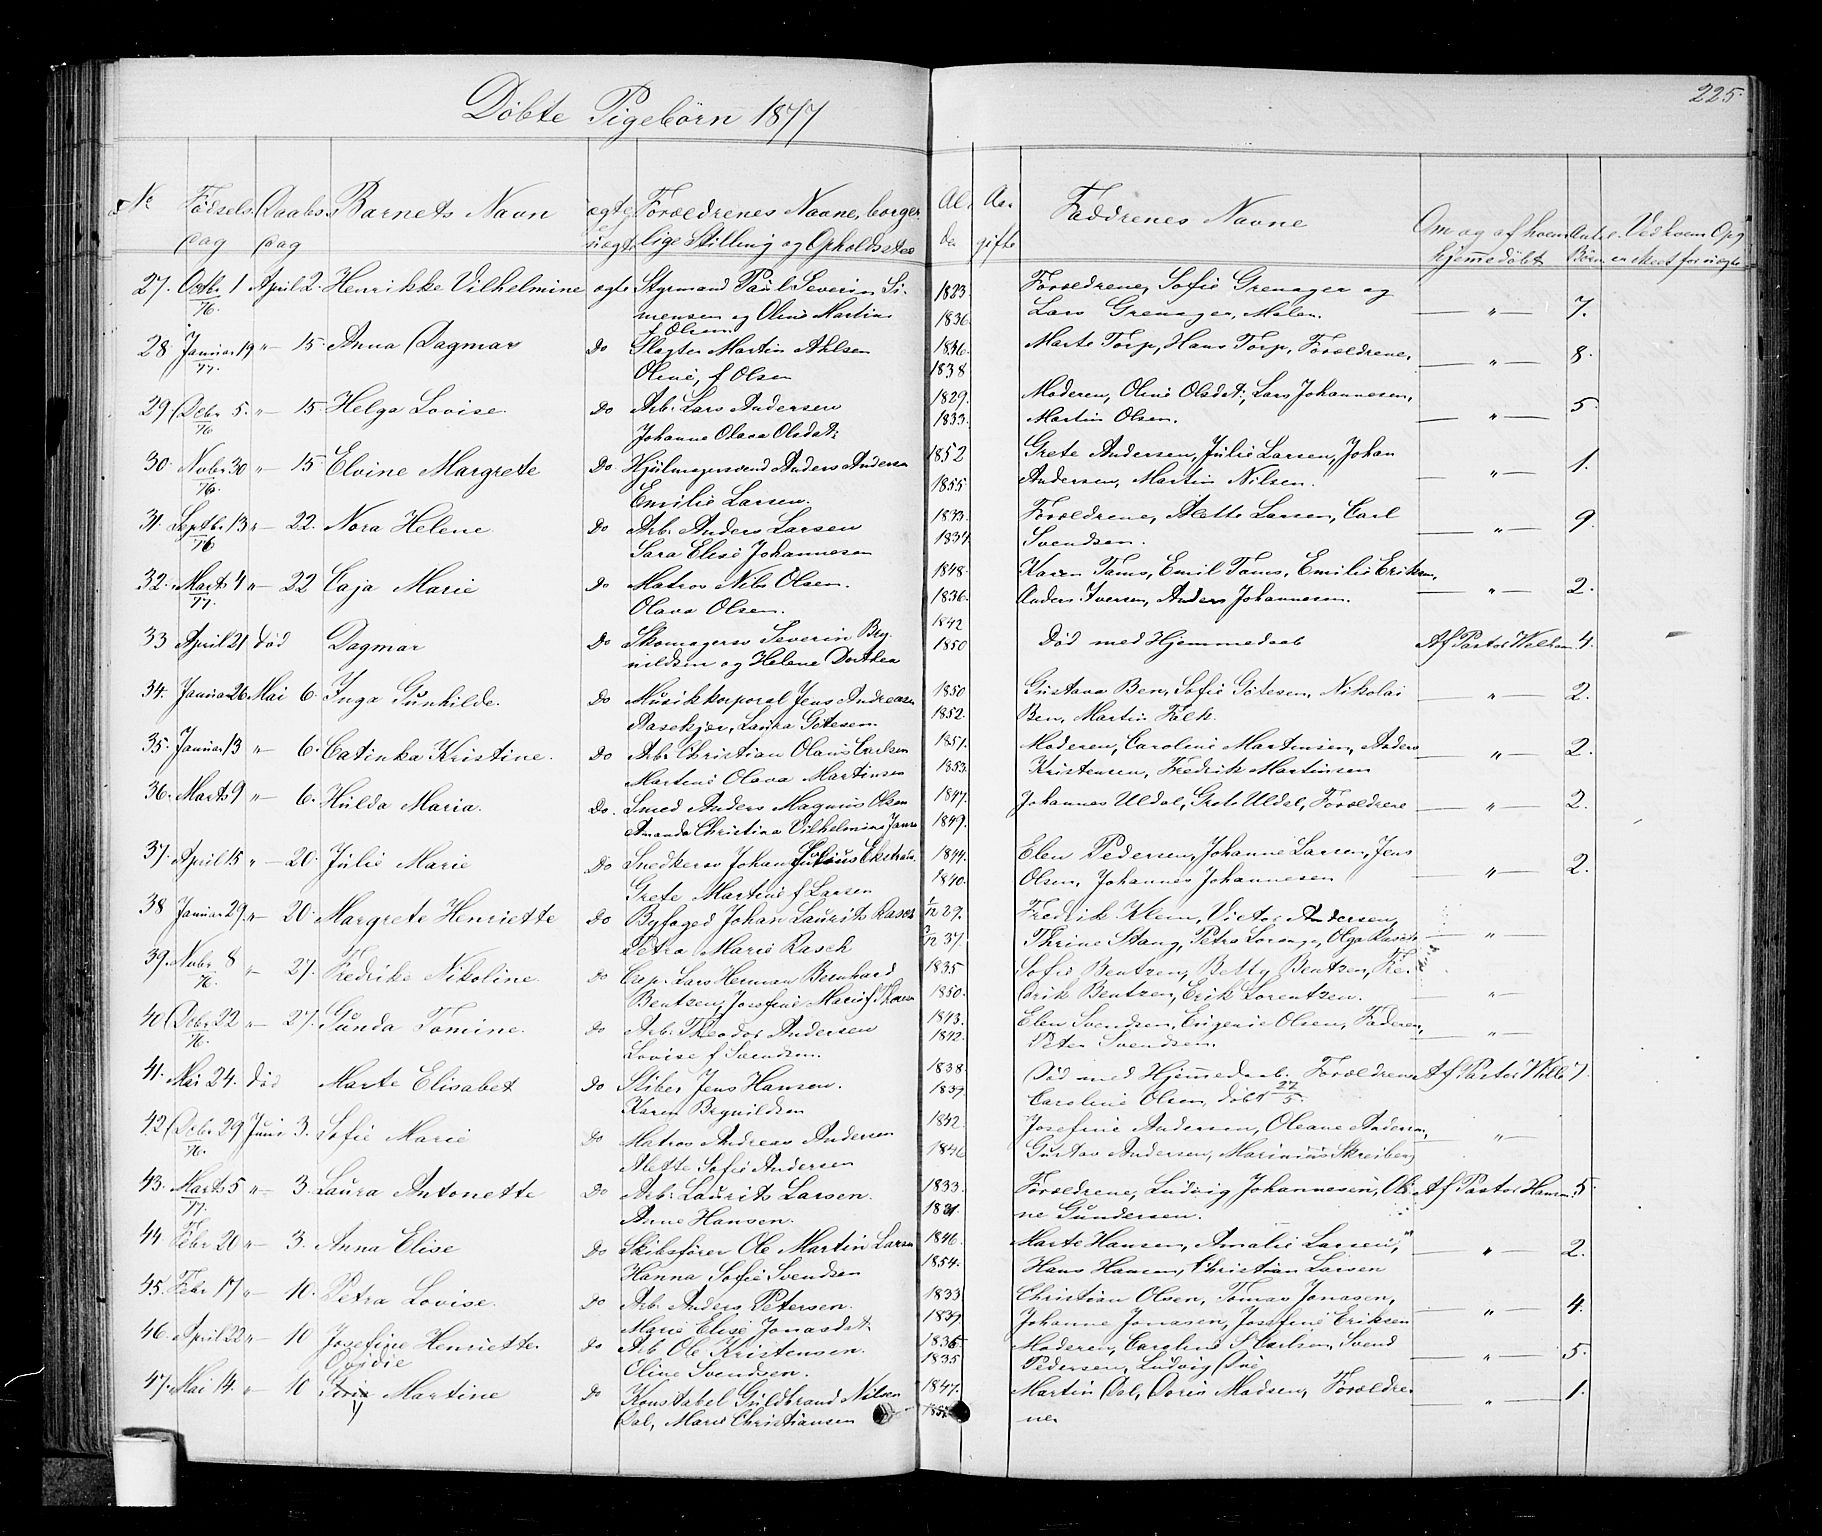 Døbte Pigebørn 1877
225.
No Fødsels Daabs Barnets Navn ægte Forældrenes Navne, borger Al Aar Faddrenes Navne Om og af hvem Antal Ved hvem Opg
dag dag uægte lige Stilling og Opholdssted der gifte hjemmedøbt Børn er skeet for uægte
27. Octbr 1 April 2. Henrikke Vilhelmine ægte Styrmand Paul Severin Si- 1823. Forældrene, Sofie Grenager og
76 mensen og Oline Martine 1836. Lars Grenager, — " — 7.
f Olsen
28. Januar 19 " — 15. Anna Dagmar Do Slagter Martin Ahlsen 1836. Marte Torp, Hans Torp, Forældrene.
77. Oline, f Olsen 1838 — " — 8
29 Debr 5. " — 15 Helga Lovise. Do Arb. Lars Andersen 1829. Moderen, Oline Olsdat:, Lars Johannesen,
76 Johanne Olava Olsdat: 1833. Martin Olsen. — " — 5
30. Nvbr 30 " — 15 Elvine Margrete Do Hjulmagersvend Anders Andersen 1852 Grete Andersen, Julie Larsen, Johan
76. Emilie Larsen. 1855 Andersen, Martin Nilsen. — " — 1.
31. Septbr 13 " — 22. Nora Helene Do Arb. Anders Larsen 1833. Forældrene, Alette Larsen, Carl
76 Sara Elise Johannesen 1834. Svendsen. — " — 9
32. Marts 4 " — 22 Caja Marie Do Matros Nils Olsen. 1848. Karen Tams, Emil Tams, Emilie Eriksen,
77. Olava Olsen. 1836. Anders Iversen, Anders Johannesen. — " — 2.
33 April 21 Død Dagmar Do Skomagersv Severin Bry- 1842 Død med Hjemmedaab Af Pastor 4.
nildsen og Helene Dorthea 1850
34. Januar 26 Mai 6. Inga Gunhilde. Do Musikkorporal Jens Andreasen 1850 Gustava Ben, Sofie Götesen, Nikolai
Aasekjær, Laura Götesen 1852. Ben, Martin Falk. — " — 2.
35. Januar 13 " — 6. Catinka Kristine. Do Arb. Christian Olaus Carlsen 1851. Moderen, Caroline Martensen, Anders
Martine Olava Martinsen 1853. Kristensen, Fredrik Martinsen — " — 2.
36. Marts 9 " — 6. Hulda Maria. Do. Smed Anders Magnus Olsen 1847. Johannes Uldal, Grete Uldal, Forældrene — " — 2.
Amanda Christina Vilhelmina 1849.
37. April 15 " — 20. Julie Marie Do Snedkersv Johan Julius 1844. Elen Pedersen, Johanne Larsen, Jens
Grete Martine f Larsen 1840. Olsen, Johannes Johannesen — " — 2.
38 Januar 29 " — 20. Margrete Henriette Do Byfoged Johan Laurits Rasch 29. Fredrik Klem, Victor Andersen,
Petra Marie Rasch 37. Thrine Stang, Petra Lorange, Olga Rasch — " —
39. Nvbr 8 " — 27. Fredrike Nikoline. Do Cap. Lars Herman Bernhard 1835 Sofie Bentzen, Betty Bentzen, Fre-
76. Bentzen, Josefine Marie f 1850. drik Bentzen, Erik Lorentzen. — " —
40 Debr 22 " — 27. Gunda Tomine. Do Arb. Theodor Andersen 1843. Elen Svendsen, Eugenie Olsen, Faderen,
76. Lovise f Svendsen. 1842. Peter Svendsen. — " —
41. Mai 24. Død Marte Elisabet Do Sliber Jens Hansen. 1838. Død med Hjemmedaab. Forældrene Af Pastor
Karen Brynildsen 1839 Caroline Olsen, døbt 27/5.
42 Debr 29 Juni 3. Sofie Marie Do Matros Andreas Andersen 1842. Josefine Andersen, Oleane Andersen,
76. Alette Sofie Andersen 1846 Gustav Andersen, Marinius Skreiberg — " —
43. Marts 5 " — 3. Laura Antonette Do Arb. Laurits Larsen. 1833. Forældrene, Ludvig Johannesen, Oli- Af Pastor Hansen 5.
77. Anne Hansen. 1831. ne Gundersen.
44 Febr 20 " — 3. Anna Elise Do Skibsfører Ole Martin Larsen 1846. Marte Hansen, Amalie Larsen,
Hanna Sofie Svendsen 1854. Hans Hansen, Christian Larsen — " — 2.
45. Febr 17 " — 10. Petra Lovise. Do Arb. Anders Petersen. 1833 Christian Olsen, Tomas Jonasen,
Marie Elise Jonasdat: 1839. Johanne Jonasen, Josefine Eriksen — " — 4.
46. April 22 " — 10 Josefine Henriette Do Arb Ole Kristensen. 1836 Moderen, Caroline S Carlsen, Svend
Ovidie Oline Svendsen. 1835 Pedersen, Ludvig — " — 5.
47. Mai 14. " — 10 Martine Do Konstabel Guldbrand Nilsen 1847. Martin Dal, Doris Madsen, Forældre-
Dal, Marie Christiansen ne. — " — 1.